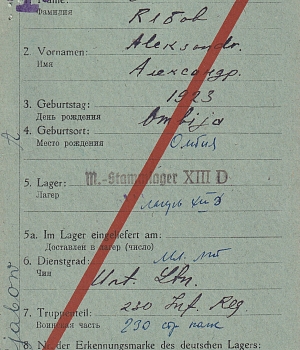 1. Name:
Фамилия
Рябов
2. Vornamen: Aleksandr.
Имя
Александр.
3. Geburtstag: 1923
День рождения
4. Geburtsort: Ombija
Место рождения Омбия
5. Lager: M.-Stammlager XIII D
Лагер лагерь XIII Д
5a. Im Lager eingeliefert am:
Доставлен в лагер (число)
6. Dienstgrad: мл. лт
Чин Unt. Ltn.
7. Truppenteil: 230 Inf. Reg.
Воинская часть 230 стр полк
8. Nr. der Erkennungsmarke des deutschen Lagers:
jabow